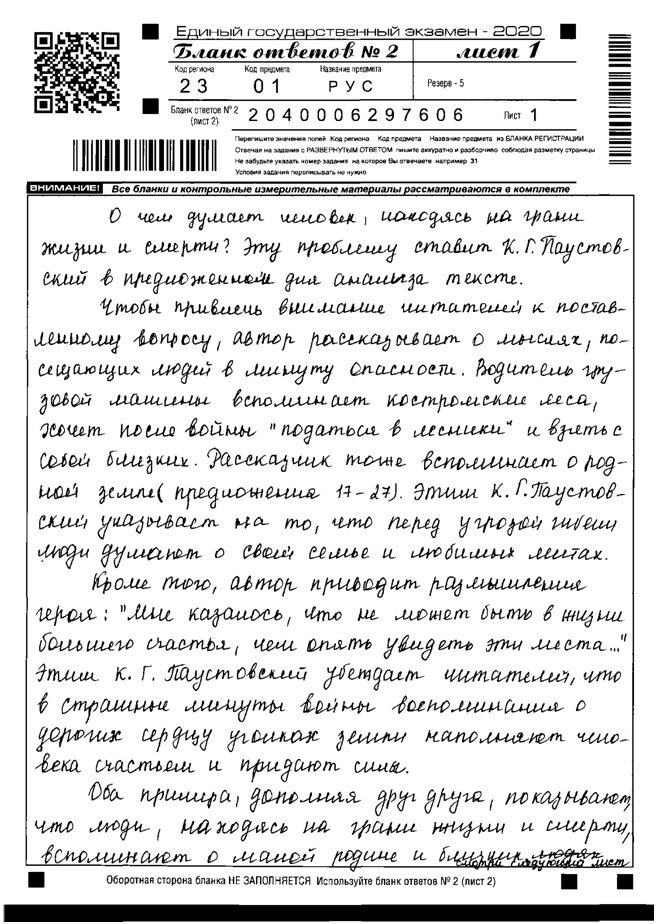 Единый государственный экзамен - 2020
Бланк ответов № 2 лист 1
Код региона Код предмета Название предмета
23 01 РУС Резерв - 5
Бланк ответов № 2 (лист 2) 2040006297606 Лист 1
Перепишите значения полей Код региона Код предмета Название предмета из БЛАНКА РЕГИСТРАЦИИ
Отвечая на задания с РАЗВЕРНУТЫМ ОТВЕТОМ пишите аккуратно и разборчиво соблюдая разметку страницы
Не забудьте указать номер задания на которое Вы отвечаете например 31
Условия задания переписывать не нужно
ВНИМАНИЕ! Все бланки и контрольные измерительные материалы рассматриваются в комплекте
О чем думает человек, находясь на грани
жизни и смерти? Эту проблему ставит К. Г. Паустов-
ский в предложенном для анализа тексте.
Чтобы привлечь внимание читателей к постав-
ленному вопросу, автор рассказывает о мыслях, по-
сещающих людей в минуту опасности. Водитель гру-
зовой машины вспоминает костромские леса,
хочет после войны "податься в лесники" и взять с
собой близких. Рассказчик тоже вспоминает о род-
ной земле (предложения 17-27). Этим К. Г. Паустов-
ский указывает на то, что перед угрозой гибели
люди думают о своей семье и любимых местах.
Кроме того, автор приводит размышления
героя: "Мне казалось, что не может быть в жизни
большего счастья, чем опять увидеть эти места..."
Этим К. Г. Паустовский убеждает читателя, что
в страшные минуты войны воспоминания о
дорогих сердцу уголках земли наполняют чело-
века счастьем и придают силы.
Оба примера, дополняя друг друга, показывают,
что люди, находясь на грани жизни и смерти,
вспоминают о малой родине и близких людях
смотри следующий лист
Оборотная сторона бланка НЕ ЗАПОЛНЯЕТСЯ Используйте бланк ответов № 2 (лист 2)